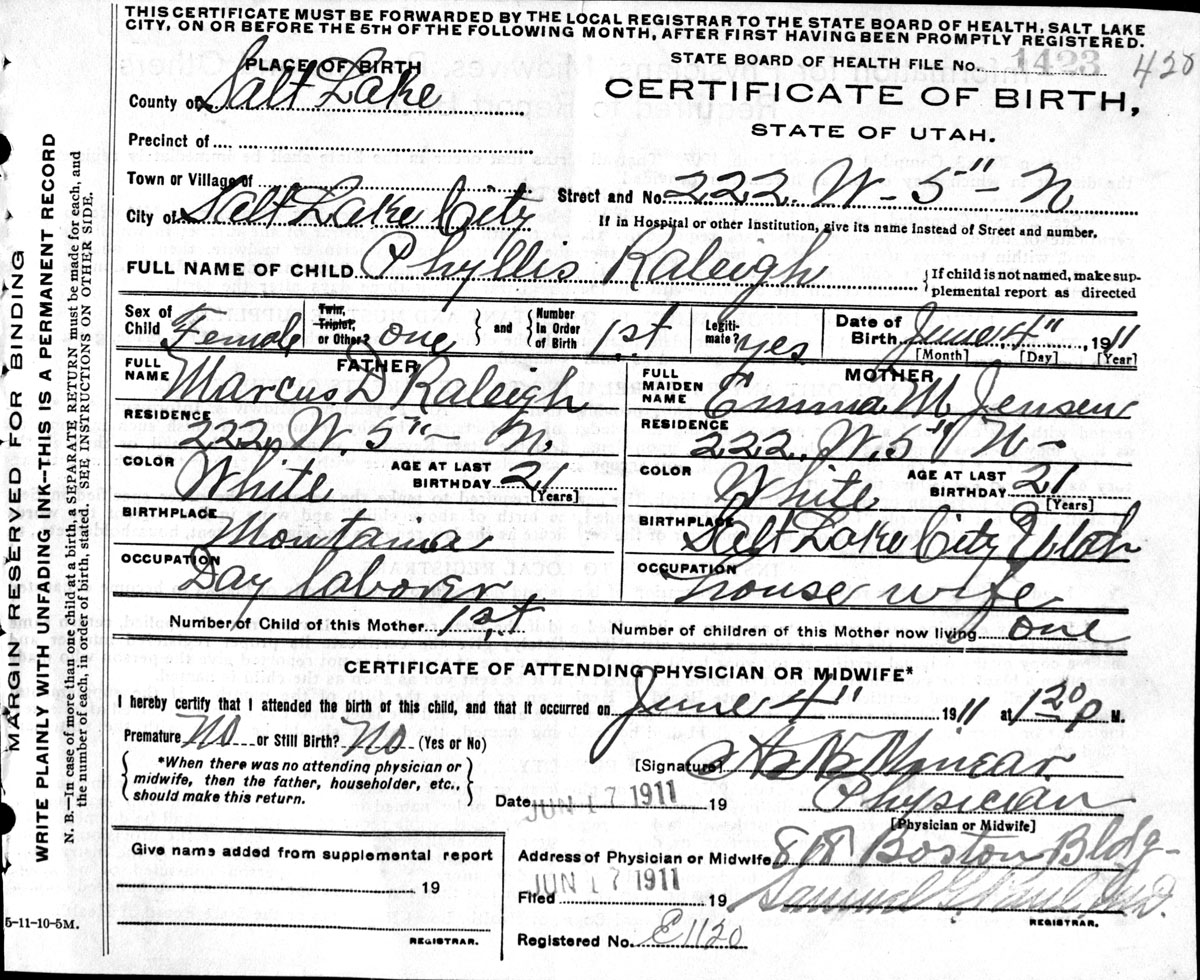 THIS CERTIFICATE MUST BE FORWARDED BY THE LOCAL REGISTRAR TO THE STATE BOARD OF HEALTH, SALT LAKE
CITY, ON OR BEFORE THE 5TH OF THE FOLLOWING MONTH, AFTER FIRST HAVING BEEN PROMPTLY REGISTERED.
STATE BOARD OF HEALTH FILE NO. 1423 428
PLACE OF BIRTH
County of Salt Lake
CERTIFICATE OF BIRTH,
STATE OF UTAH.
Precinct of
Town or Village of
Street and No. 222. W. 5" N
City of Salt Lake City
If in Hospital or other Institution, give its name instead of Street and number.
FULL NAME OF CHILD Phyllis Raleigh
If child is not named, make sup-
plemental report as directed
Sex of Child Female
Twin, Triplet, or Other? one
and
Number In Order of Birth 1st
Legiti- mate? yes
Date of Birth June 4", 1911
[Month] [Day] [Year]
FATHER
FULL NAME Marcus D Raleigh
RESIDENCE 222. W. 5th N.
COLOR White
AGE AT LAST BIRTHDAY 21
[Years]
BIRTHPLACE Montana
OCCUPATION Day laborer
MOTHER
FULL MAIDEN NAME Emma M. Jensen
RESIDENCE 222. W. 5" N
COLOR White
AGE AT LAST BIRTHDAY 21
[Years]
BIRTHPLACE Salt Lake City Utah
OCCUPATION House wife
Number of Child of this Mother 1st
Number of children of this Mother now living one
CERTIFICATE OF ATTENDING PHYSICIAN OR MIDWIFE*
I hereby certify that I attended the birth of this child, and that it occurred on June 4" 1911 at 1 20 P M.
Premature No or Still Birth? No (Yes or No)
*When there was no attending physician or
midwife, then the father, householder, etc.,
should make this return.
[Signature]
Date JUN 17 1911 19
Physician
[Physician or Midwife]
Give name added from supplemental report
19
REGISTRAR.
Address of Physician or Midwife 818 Boston Bldg-
Filed JUN 17 1911 19
REGISTRAR.
Registered No. E1120
5-11-10-5M.
MARGIN RESERVED FOR BINDING
WRITE PLAINLY WITH UNFADING INK—THIS IS A PERMANENT RECORD
N. B.—In case of more than one child at a birth, a SEPARATE RETURN must be made for each, and
the number of each, in order of birth, stated. SEE INSTRUCTIONS ON OTHER SIDE.